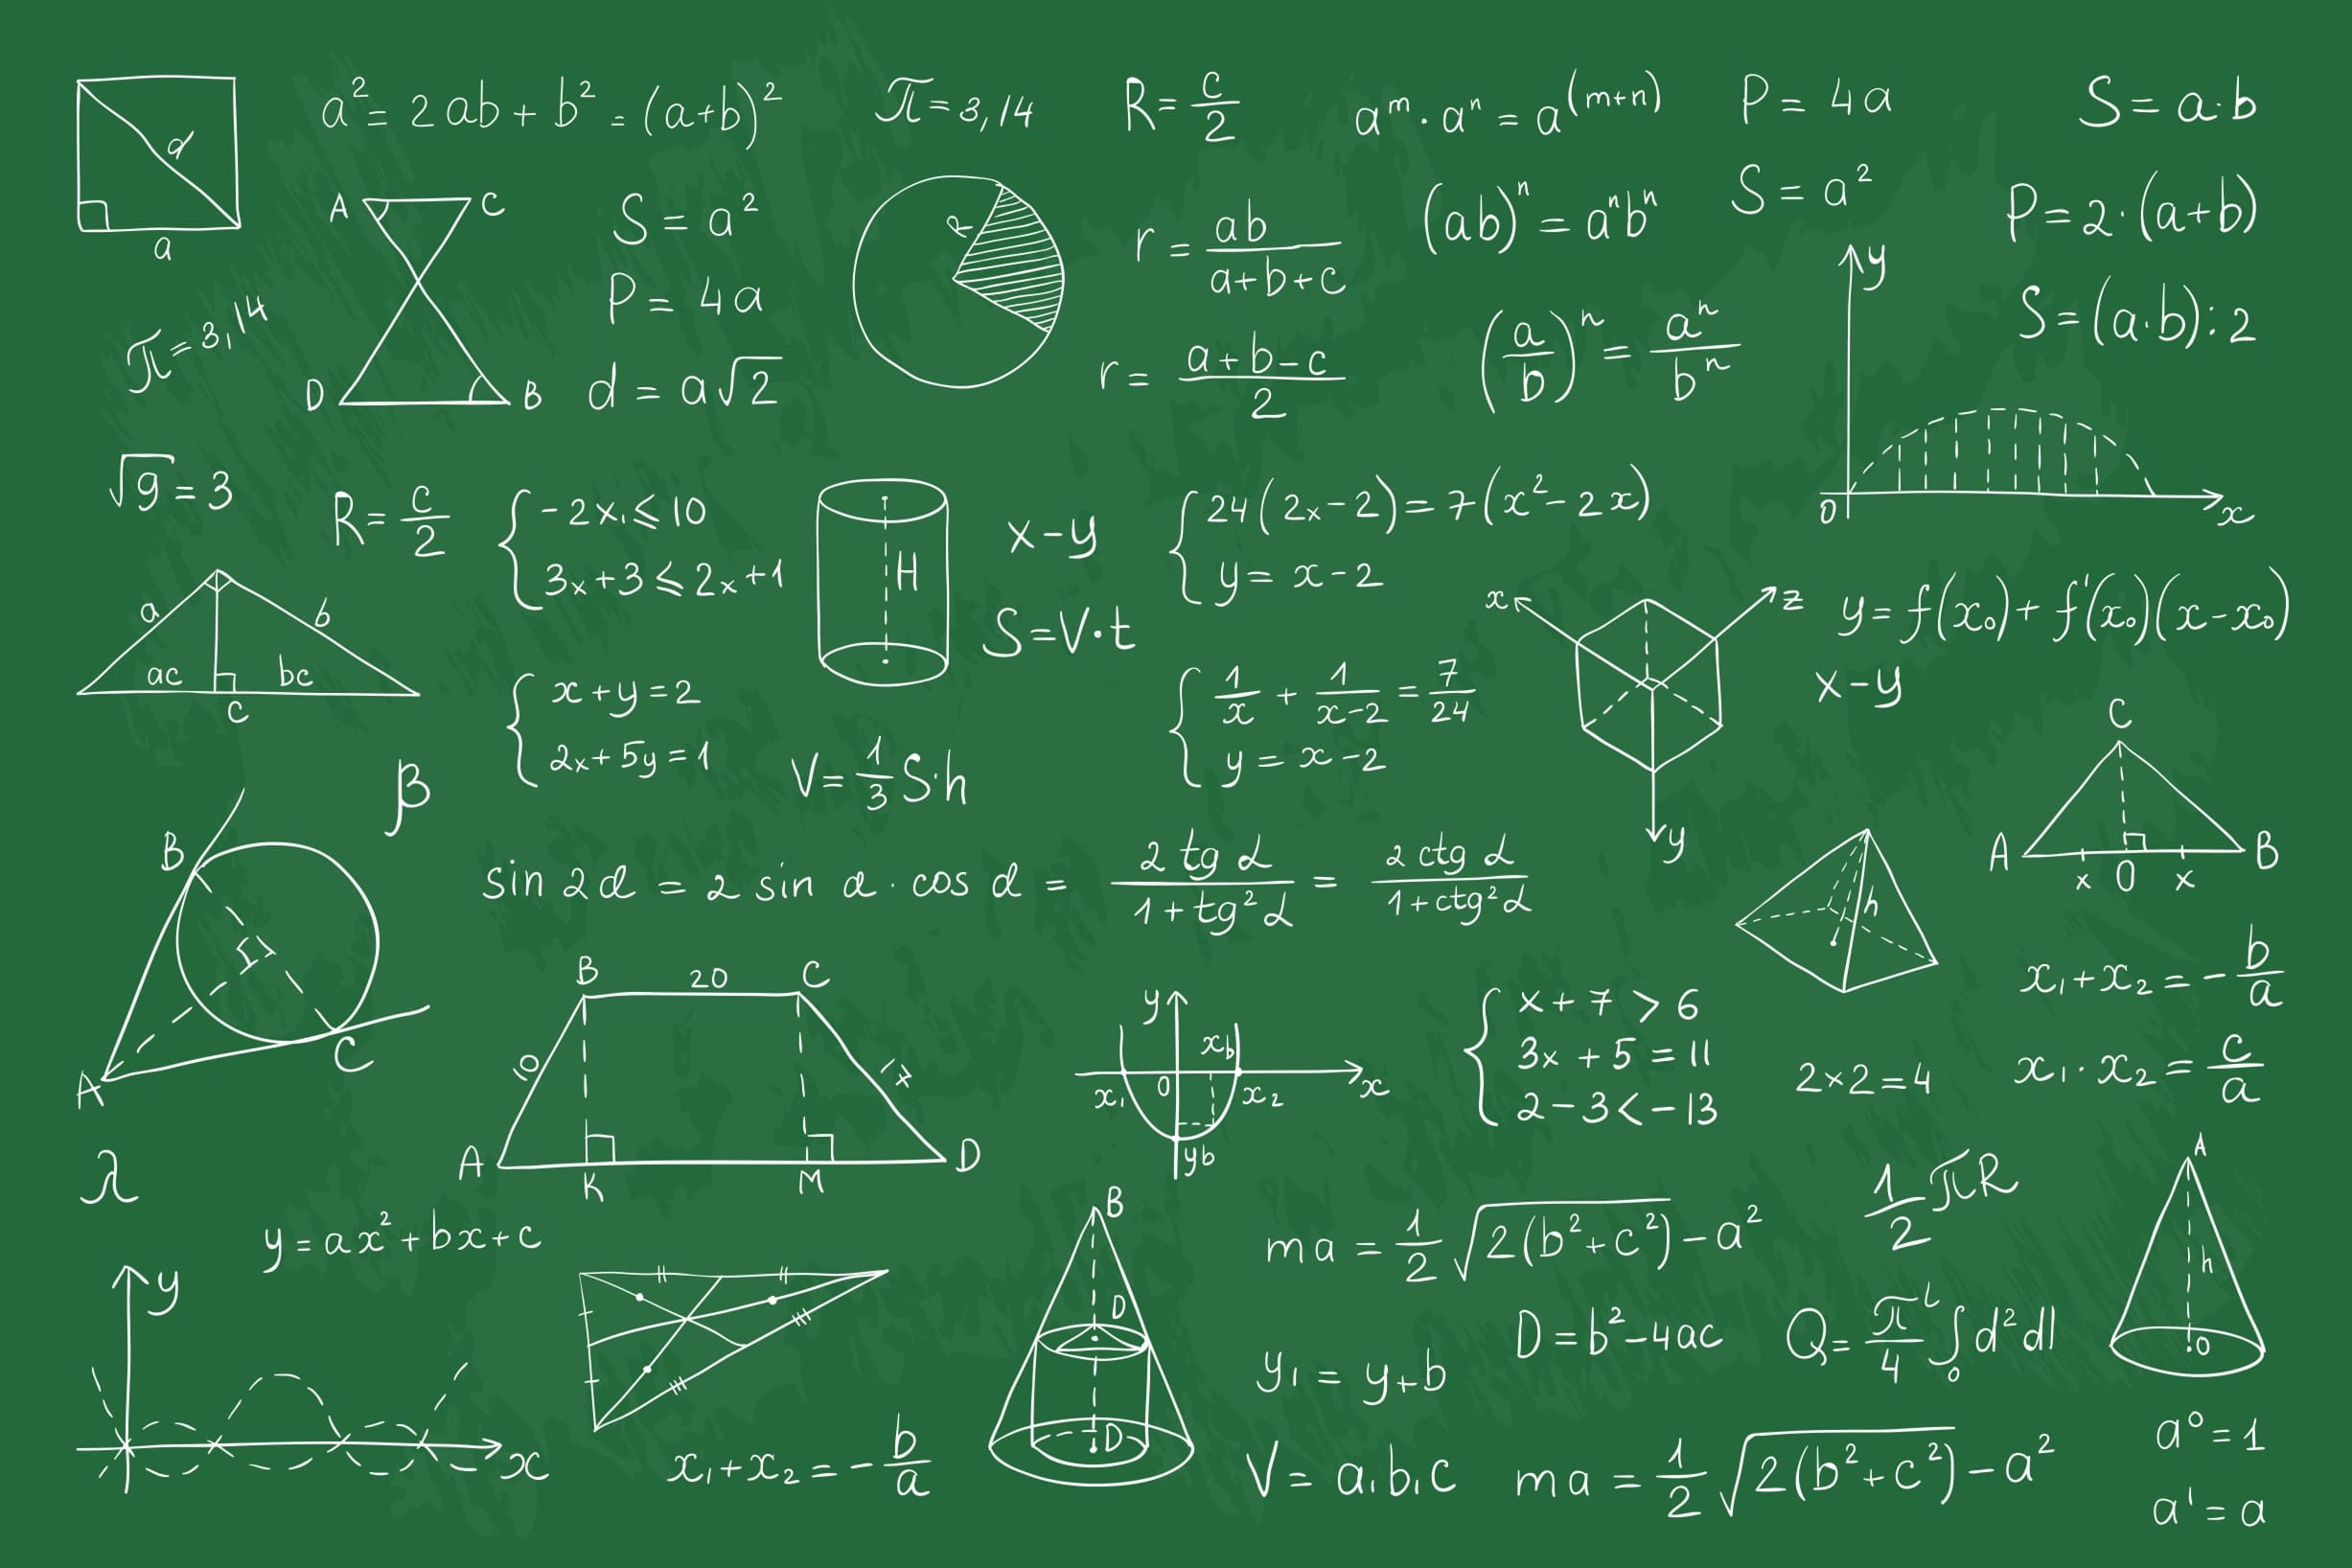 d
a
a² = 2ab + b² = (a+b)²
π = 3,14
R = c/2
aᵐ · aⁿ = a⁽ᵐ⁺ⁿ⁾
P = 4a
S = a·b
A C
D B
S = a²
P = 4a
d = a√2
R
r = ab/(a+b+c)
r = (a+b-c)/2
(ab)ⁿ = aⁿbⁿ
(a/b)ⁿ = aⁿ/bⁿ
S = a²
P = 2·(a+b)
S = (a·b):2
y
0 x
π = 3,14
√9 = 3
R = c/2
{ -2x₁ ⩽ 10
3x+3 ⩽ 2x+1
H
x-y
S = V·t
{ 24(2x-2) = 7(x²-2x)
y = x-2
x z
y
y = f(x₀) + f'(x₀)(x-x₀)
x-y
a b
ac bc
c
{ x+y = 2
2x+5y = 1
V = 1/3 S·h
{ 1/x + 1/(x-2) = 7/24
y = x-2
C
A x O x B
β
B
C
A
sin 2d = 2 sin d · cos d = 2 tg α/(1+tg²α) = 2 ctg α/(1+ctg²α)
h
x₁+x₂ = -b/a
x₁·x₂ = c/a
B 20 C
10 17
A K M D
y
xb
x₁ 0 x₂ x
yb
{ x+7 > 6
3x+5 = 11
2-3 < -13
2×2 = 4
λ
y = ax²+bx+c
y
x
x₁+x₂ = -b/a
B
D
D
ma = 1/2 √2(b²+c²) - a²
1/2 πR
A
h
O
y₁ = y+b
D = b²-4ac
Q = π/4 ˡ∫₀ d²dl
V = a₁b₁c
ma = 1/2 √2(b²+c²) - a²
a⁰ = 1
a¹ = a